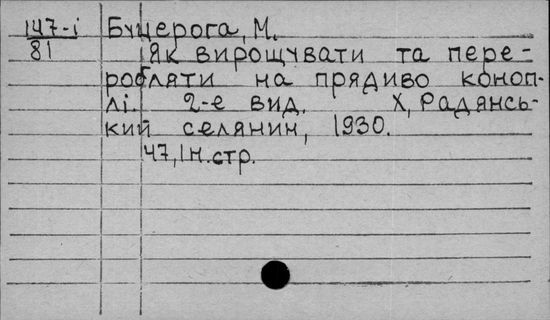 147-і Буцерога, М.
81 Як вирощувати та пере-
робляти на прядиво коноп-
лі. 2-е вид. Х, Радянсь-
кий селянин, 1930.
47, 1 н. стр.